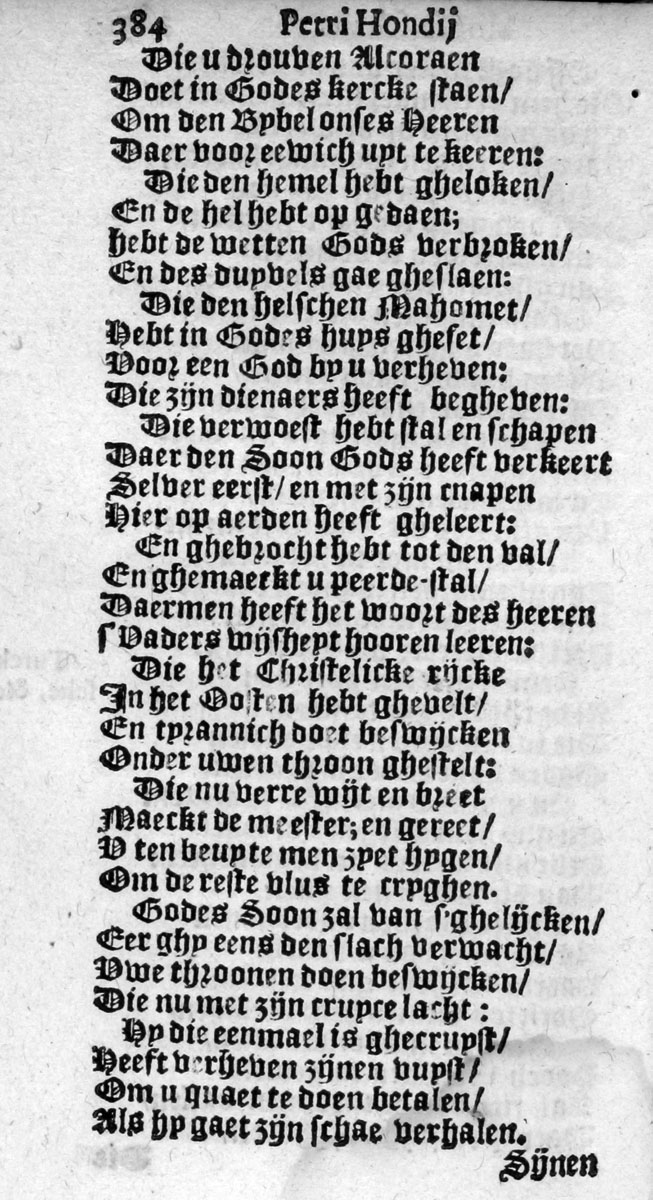 384 Petri Hondij
Die u drouven Alcoraen
Doet in Godes kercke staen/
Om den Bybel onses Heeren
Daer voor eewich uyt te keeren:
Die den hemel hebt gheloken/
En de hel hebt op gedaen;
hebt de wetten Gods verbroken/
En des duyvels gae gheslaen:
Die den helschen Mahomet/
Hebt in Godes huys gheset/
Voor een God by u verheven:
Die zijn dienaers heeft begheven:
Die verwoest hebt stal en schapen
Daer den Soon Gods heeft verkeert
Selver eerst/ en met zijn cnapen
Hier op aerden heeft gheleert:
En ghebrocht hebt tot den val/
En ghemaeckt u peerde-stal/
Daermen heeft het woort des heeren
s' Vaders wijsheyt hooren leeren:
Die het Christelicke rijcke
In het Oosten hebt ghevelt/
En tyrannich doet beswijcken
Onder uwen throon ghestelt:
Die nu verre wijt en breet
Maeckt de meester; en gereet/
V ten beuyte men zyet hygen/
Om de reste vlus te cryghen.
Godes Soon zal van s'ghelijcken/
Eer ghy eens den slach verwacht/
Vwe throonen doen beswijcken/
Die nu met zijn cruyce lacht:
Hy die eenmael is ghecruyst/
Heeft verheven zijnen vuyst/
Om u quaet te doen betalen/
Als hy gaet zijn schae verhalen.
Sijnen